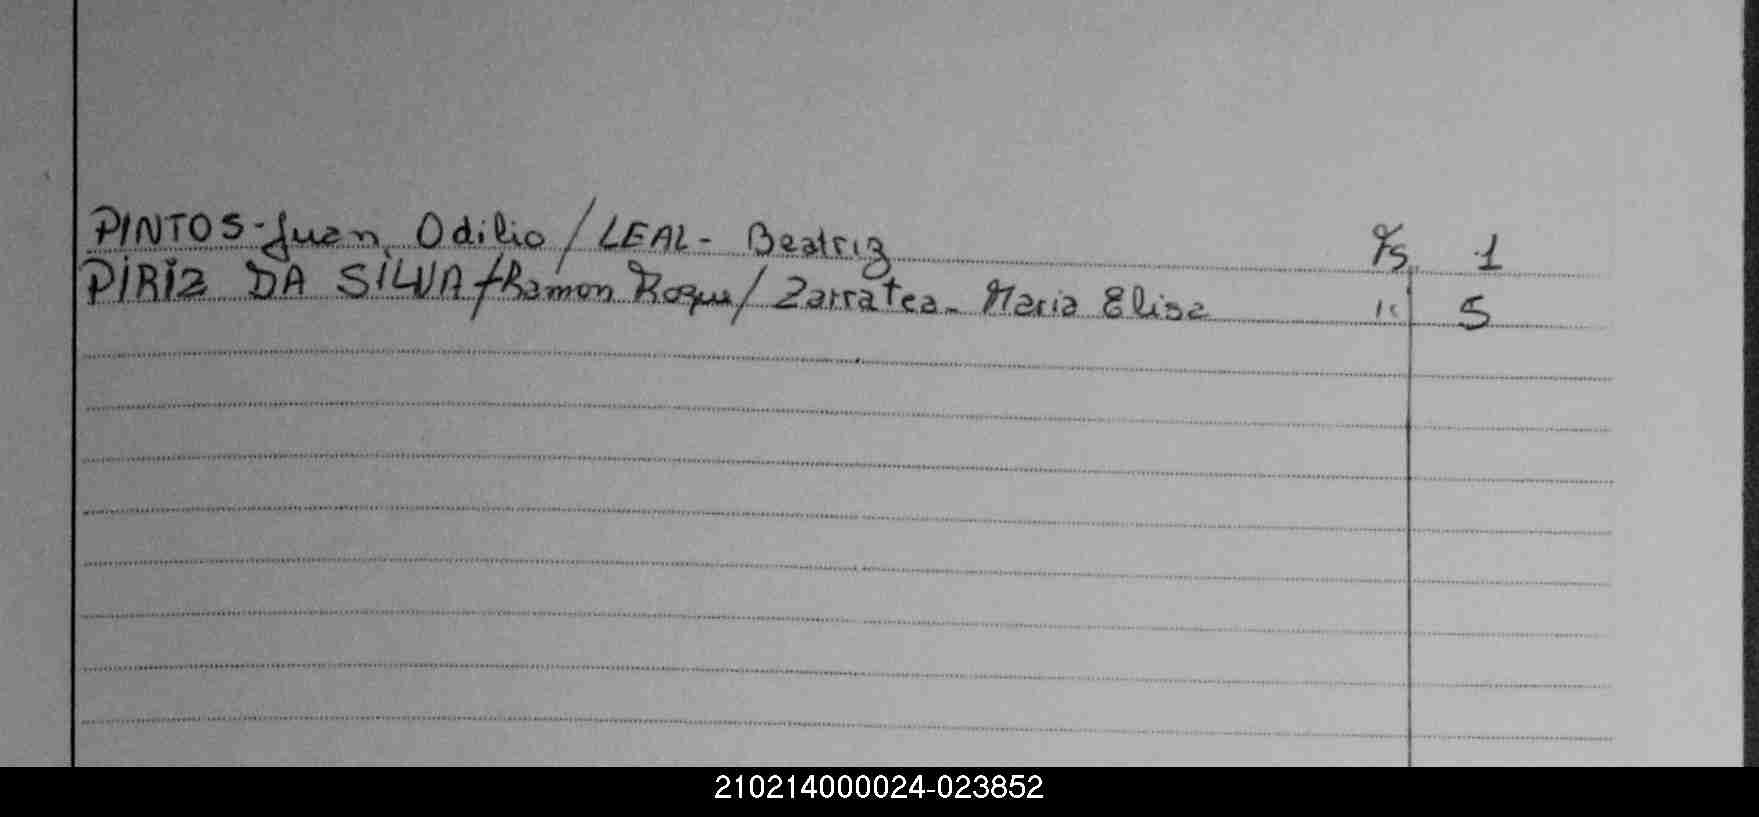 PINTOS-Juan Odilio / LEAL- Beatriz Fs. 1
PIRIZ DA SILVA-Ramon Roque / Zarratea- Maria Elisa " 5
210214000024-023852